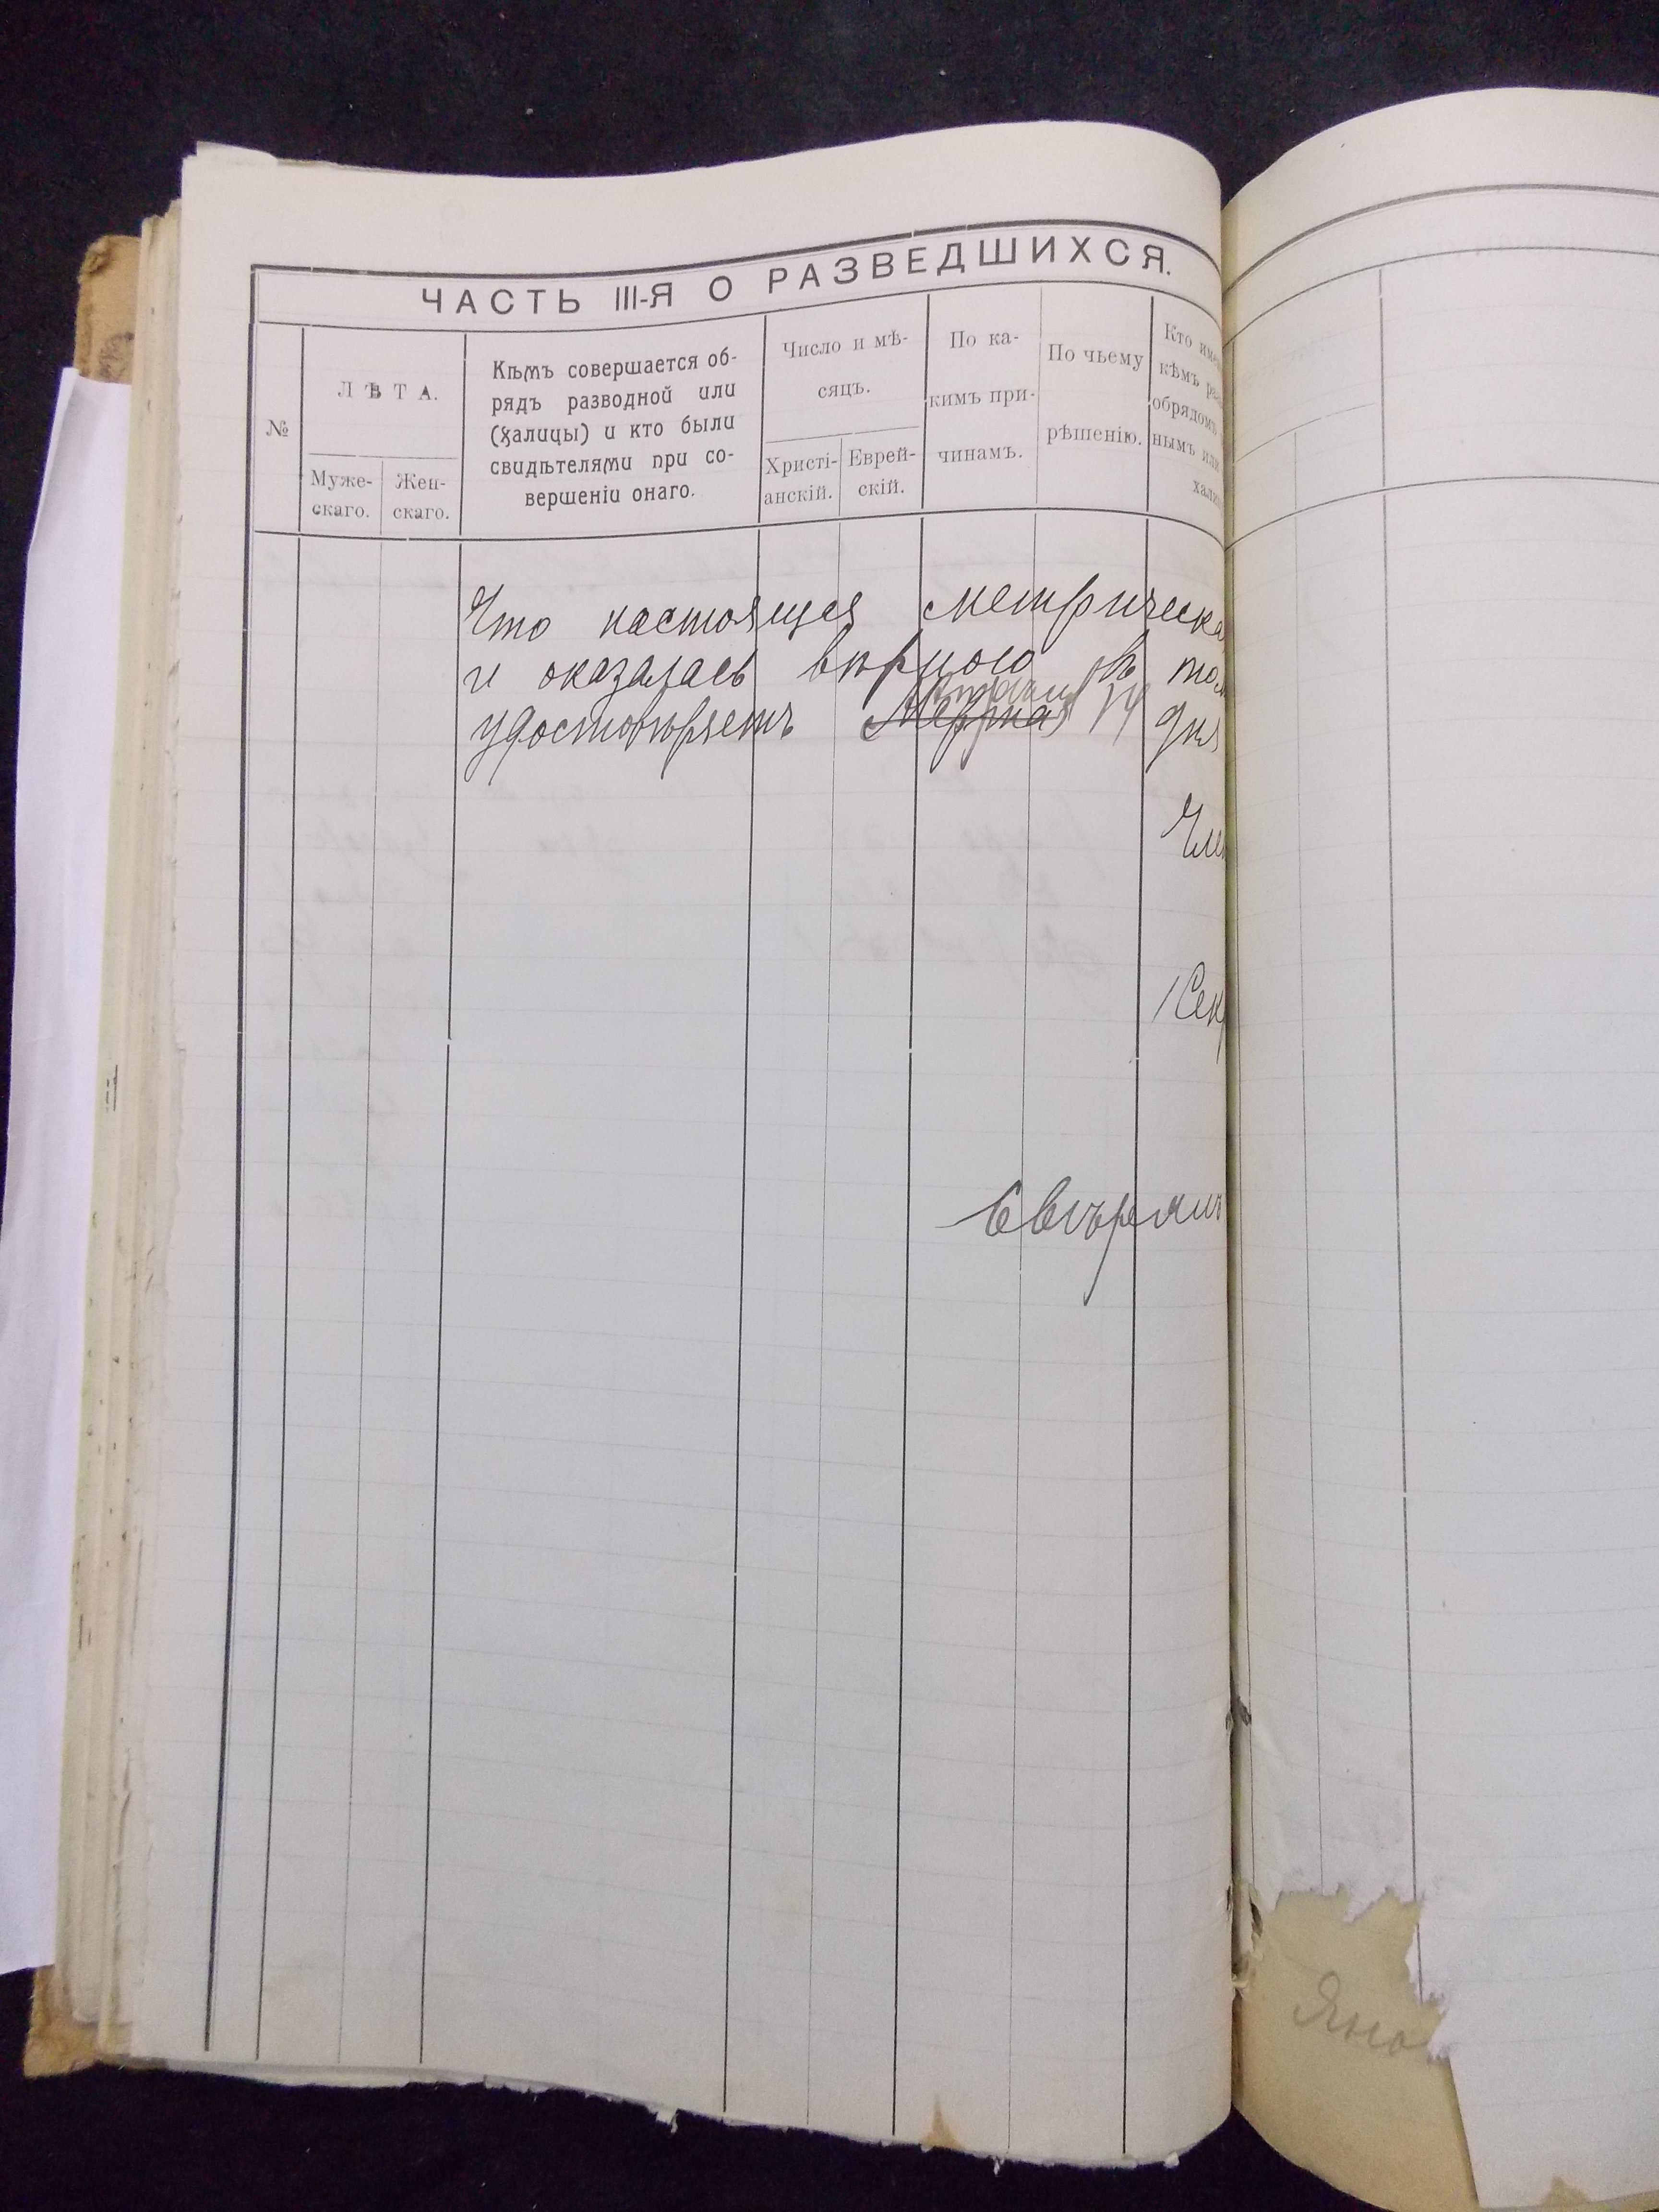 ЧАСТЬ III-Я О РАЗВЕДШИХСЯ.
№
ЛѢТА.
Муже-
скаго.
Жен-
скаго.
Кѣмъ совершается об-
рядъ разводной или
(халицы) и кто были
свидѣтелями при со-
вершеніи онаго.
Число и мѣ-
сяцъ.
Христі-
анскій.
Еврей-
скій.
По ка-
кимъ при-
чинамъ.
По чьему
рѣшенію.
Кто
кѣмъ
обрядомъ
нымъ или
Что настоящая метрическа
и оказалась вѣрною въ
удостовѣряетъ Марта дня
Чле
Сек
Яно